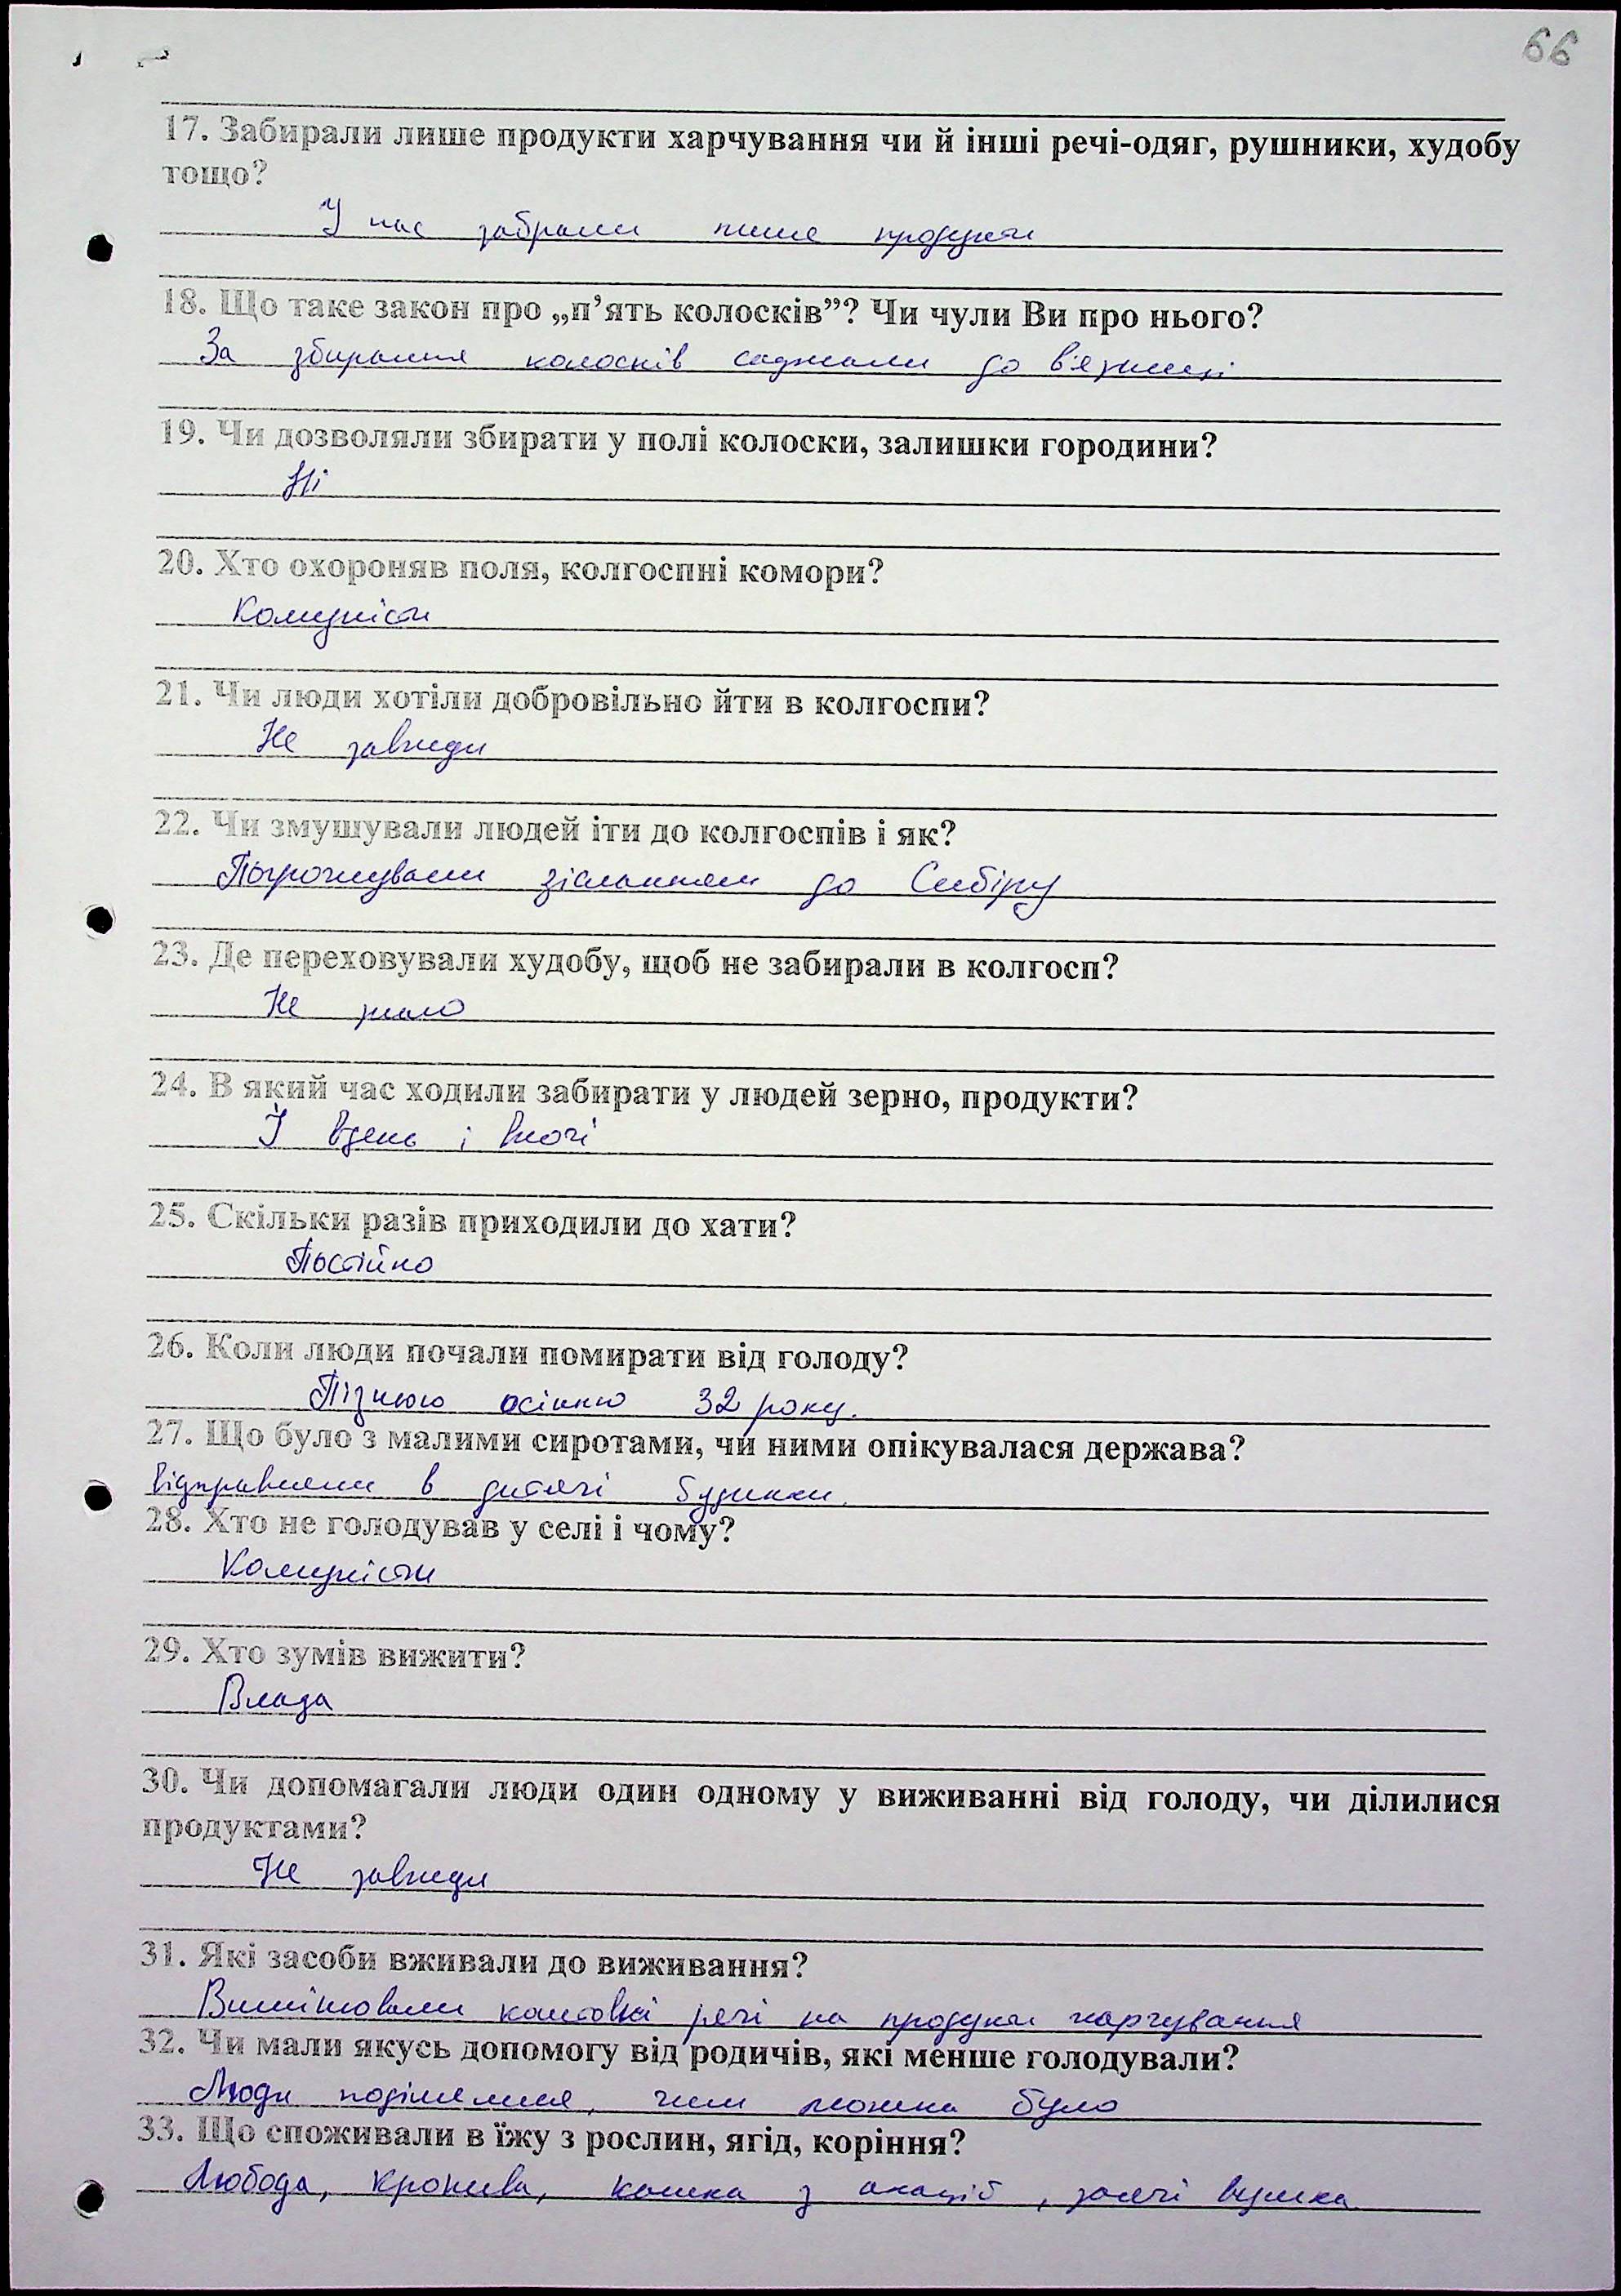 66
17. Забирали лише продукти харчування чи й інші речі-одяг, рушники, худобу
тощо?
У нас забрали лише продукти
18. Що таке закон про „п’ять колосків”? Чи чули Ви про нього?
За збирання колосків саджали до в'язниці
19. Чи дозволяли збирати у полі колоски, залишки городини?
Ні
20. Хто охороняв поля, колгоспні комори?
Комуністи
21. Чи люди хотіли добровільно йти в колгоспи?
Не завжди
22. Чи змушували людей іти до колгоспів і як?
Погрожували зісланням до Сибіру
23. Де переховували худобу, щоб не забирали в колгосп?
Не знаю
24. В який час ходили забирати у людей зерно, продукти?
І вдень і вночі
25. Скільки разів приходили до хати?
Постійно
26. Коли люди почали помирати від голоду?
Пізньою осінню 32 року.
27. Що було з малими сиротами, чи ними опікувалася держава?
Відправляли в дитячі будинки.
28. Хто не голодував у селі і чому?
Комуністи
29. Хто зумів вижити?
Влада
30. Чи допомагали люди один одному у виживанні від голоду, чи ділилися
продуктами?
Не завжди
31. Які засоби вживали до виживання?
Вимінювали коштовні речі на продукти харчування
32. Чи мали якусь допомогу від родичів, які менше голодували?
Люди поділялися, чим можна було
33. Що споживали в їжу з рослин, ягід, коріння?
Любода, кропива, кашка з акації, заячі вушка.